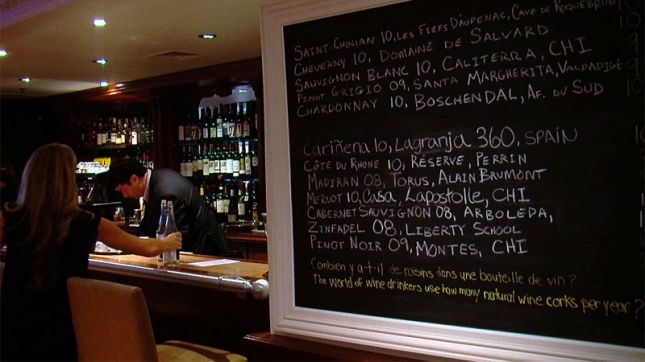 Saint-Chinian 10, Les Fiefs D'Aupenac, Cave de Roquebrun 10
Cheverny 10, Domaine de Salvard 10
Sauvignon Blanc 10, Caliterra, CHI 9
Pinot Grigio 09, Santa Margherita, Valdadige 9
Chardonnay 10, Boschendal, Af. du Sud 10
Cariñena 10, Lagranja 360, Spain 10
Côte du Rhone 10, Réserve, Perrin
Madiran 08, Torus, Alain Brumont
Merlot 10, Casa Lapostolle, CHI
Cabernet Sauvignon 08, Arboleda,
Zinfadel 08, Liberty School
Pinot Noir 09, Montes, CHI
Combien y a-t-il de raisins dans une bouteille de vin ?
The world of wine drinkers use how many natural wine corks per year ?